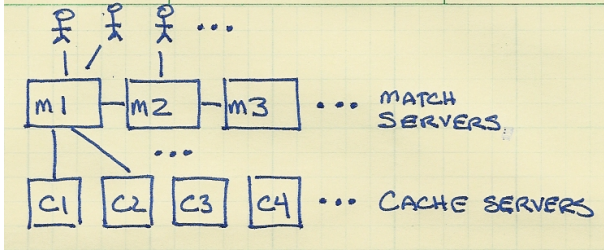 m1 m2 m3 ... MATCH
SERVERS
C1 C2 C3 C4 ... CACHE SERVERS